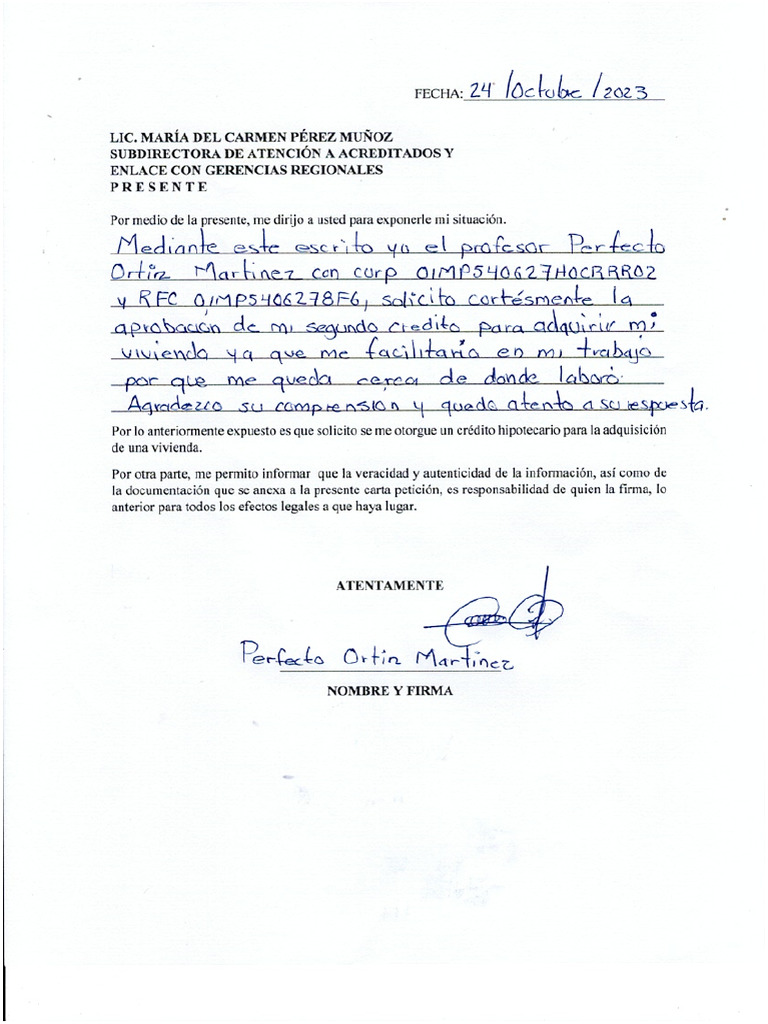 FECHA: 24 /Octubre /2023
LIC. MARÍA DEL CARMEN PÉREZ MUÑOZ
SUBDIRECTORA DE ATENCIÓN A ACREDITADOS Y
ENLACE CON GERENCIAS REGIONALES
P R E S E N T E
Por medio de la presente, me dirijo a usted para exponerle mi situación.
Mediante este escrito yo el profesor Perfecto
Ortiz Martinez con curp OIMP540627HOCRRR02
y RFC OIMP5406278F6, solicito cortésmente la
aprobación de mi segundo credito para adquirir mi
vivienda ya que me facilitaria en mi trabajo
por que me queda cerca de donde laboró.
Agradezco su comprensión y quedo atento a su respuesta.
Por lo anteriormente expuesto es que solicito se me otorgue un crédito hipotecario para la adquisición
de una vivienda.
Por otra parte, me permito informar que la veracidad y autenticidad de la información, así como de
la documentación que se anexa a la presente carta petición, es responsabilidad de quien la firma, lo
anterior para todos los efectos legales a que haya lugar.
ATENTAMENTE
Perfecto Ortiz Martinez
NOMBRE Y FIRMA